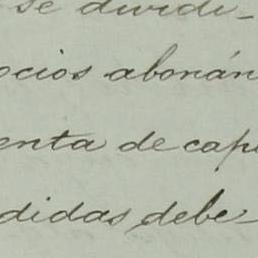 se dividi-
ocios abonán
enta de capi
didas debe-